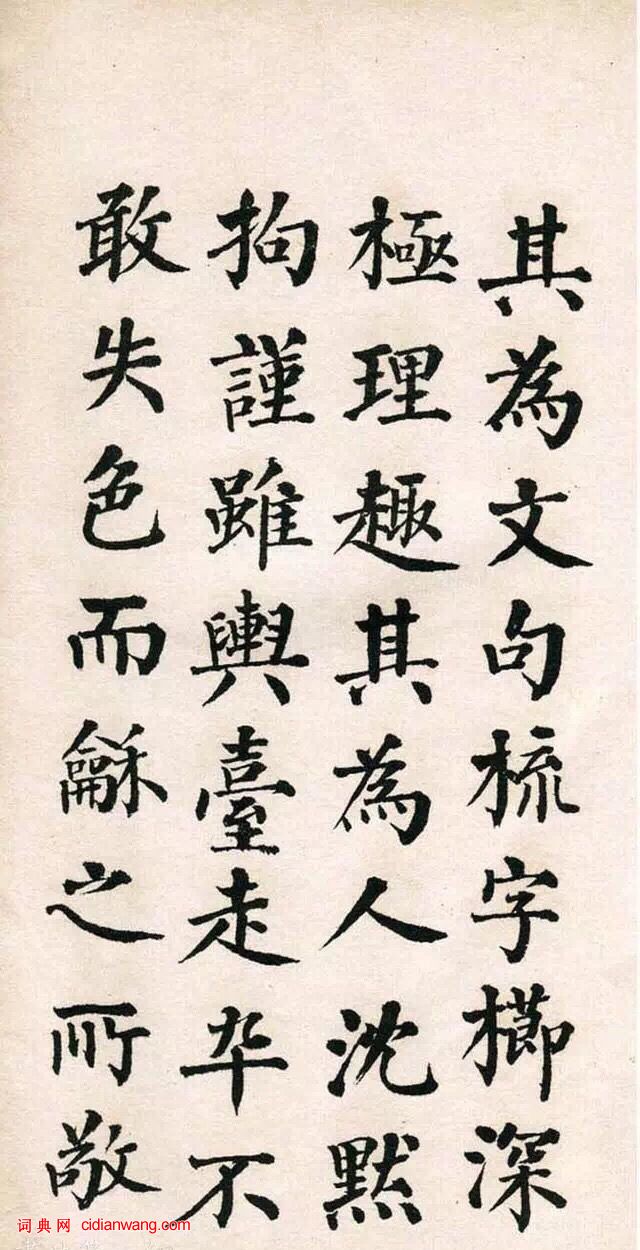 其為文句梳字櫛深
極理趣其為人沈默
拘謹雖輿臺走卒不
敢失色而龢之所敬
词典网 cidianwang.com